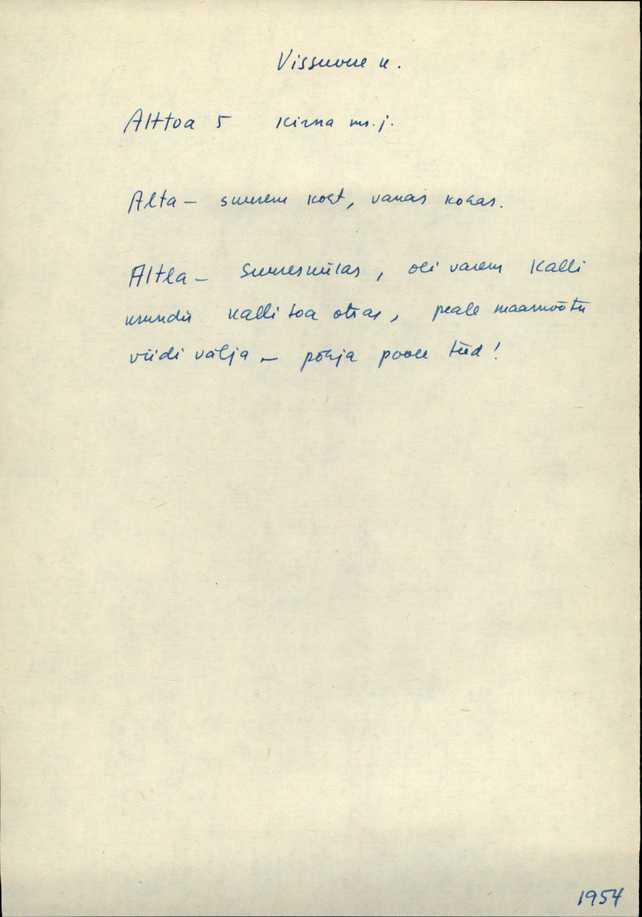 Vissuvere k.
Alttoa 5 Kirna ms. j.
Alta — suurem koht, vanas kohas.
Altla — Suuresküłas, oli varem Kalli
krundis Kalli toa otsas, peale maamõõtu
viidi välja — põhja poole teed!
1954